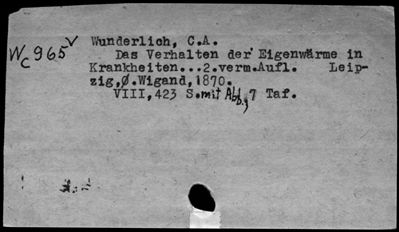 Wc965v Wunderlich, C.A.
Das Verhalten der Eigenwärme in
Krankheiten...2.verm.Aufl. Leip-
zig,Ø.Wigand,1870.
VIII,423 S.mit Abb, 7 Taf.